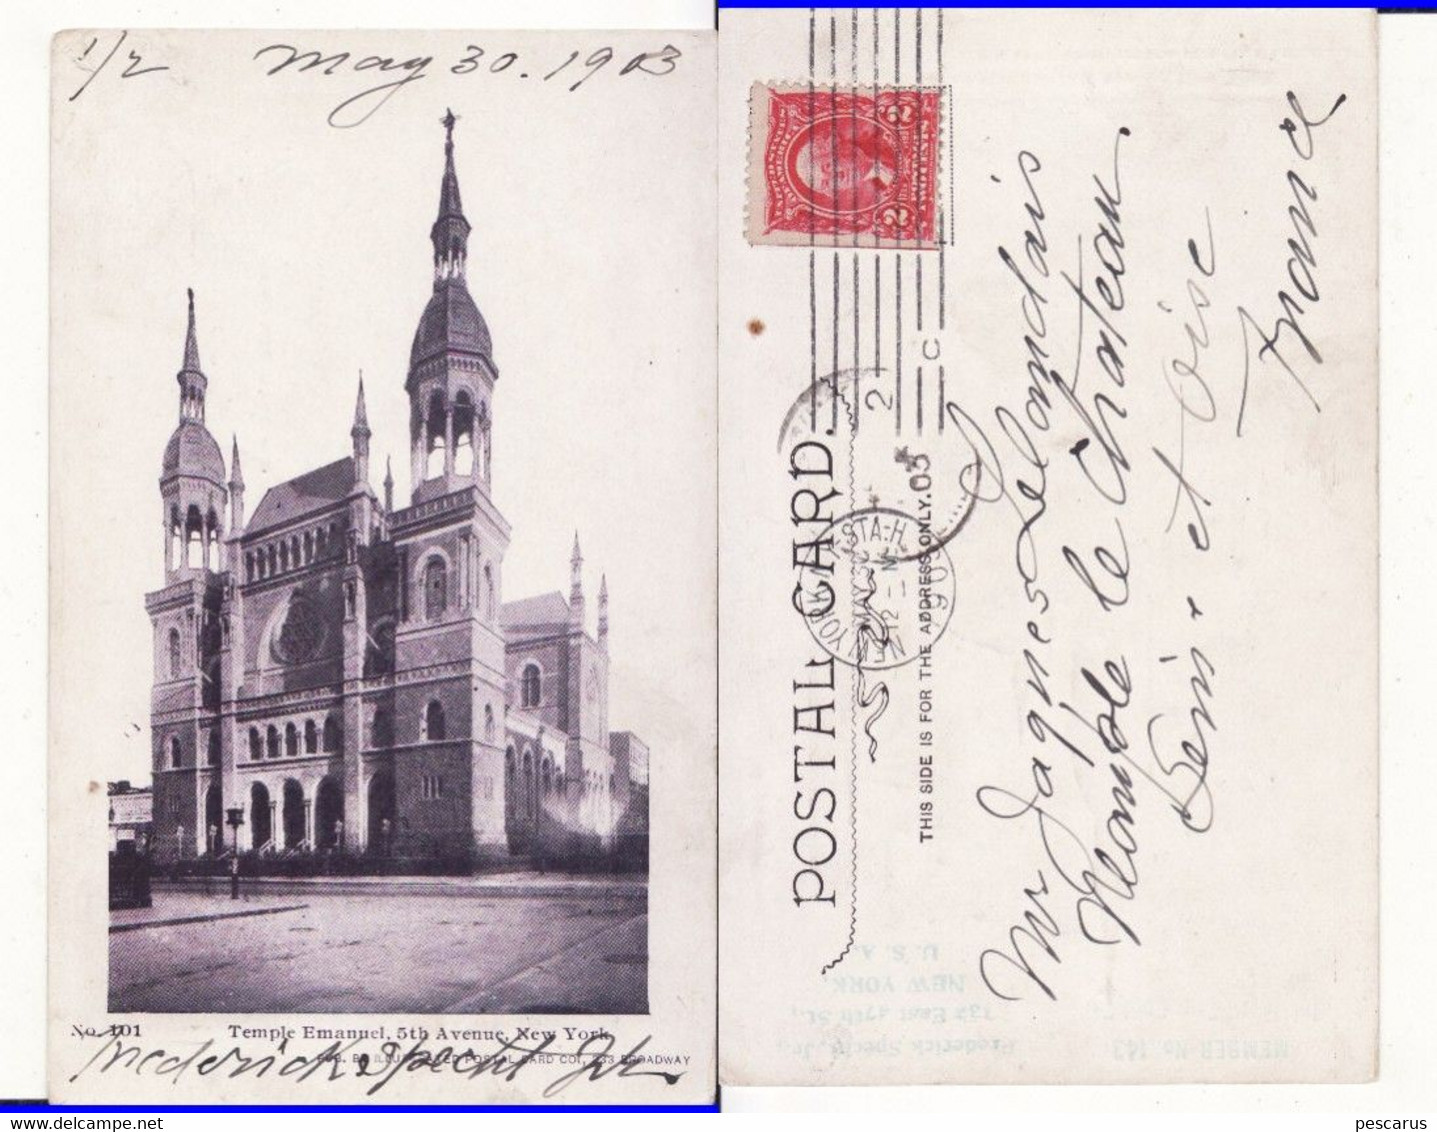 1/2 May 30. 1903
No. 101 Temple Emanuel, 5th Avenue, New York.
PUB. BY ILLUSTRATED POSTAL CARD CO., 233 BROADWAY
Frederick Specht Jr.
2 CENTS 2
2
C
POSTAL CARD.
THIS SIDE IS FOR THE ADDRESS ONLY.
NEW YORK, N.Y. STA-H.
MAY 30
12 - M
1903
03
Mr Jaques Lelandais
Neauple le Chateau
Sein et Oise
France
MEMBER No. 143
Frederick Specht, Jr.,
132 East 47th St.,
NEW YORK.
U. S. A.
pescarus